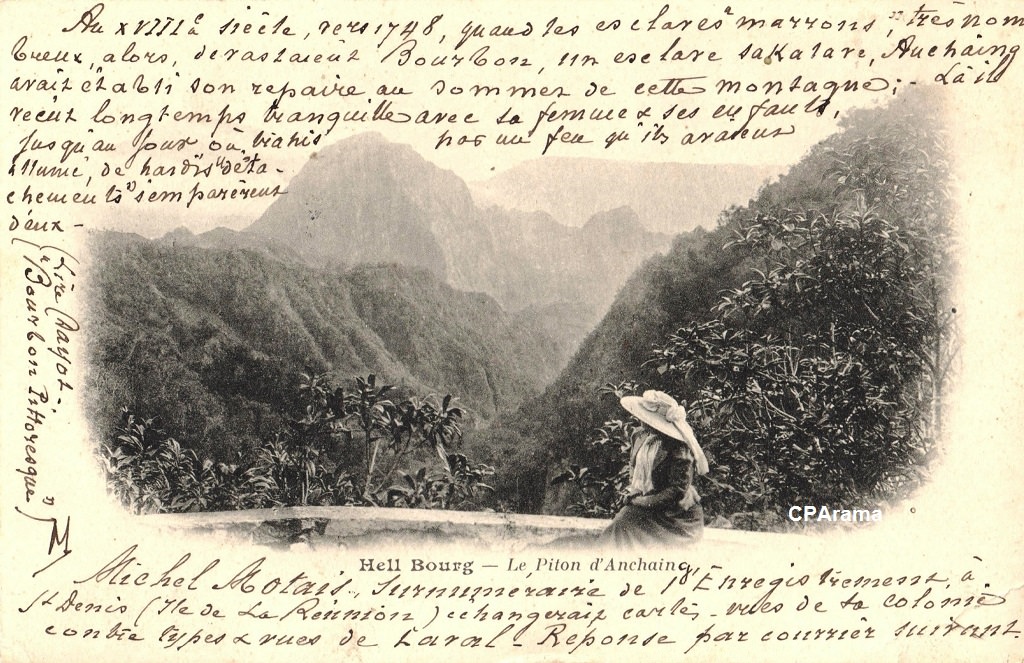 Au XVIIIe siècle, vers 1748, quand les esclaves "marrons", très nom
breux, alors, dévastaient Bourbon, un esclave sakalave, Anchaing
avait établi son repaire au sommet de cette montagne; - Là il
vécut longtemps tranquille avec sa femme & ses enfants,
jusqu'au jour où, trahis par un feu qu'ils avaient
allumé, de hardis "déta-
chements" s'emparèrent
d'eux -
(Lire Dayot -
"Bourbon Pittoresque")
M
Hell Bourg — Le Piton d'Anchaing
CPArama
Michel Motais, Surnuméraire de l'Enregistrement, à
St Denis (Ile de La Réunion) échangerait cartes-vues de sa colonie
contre types & vues de Laval - Réponse par courrier suivant.